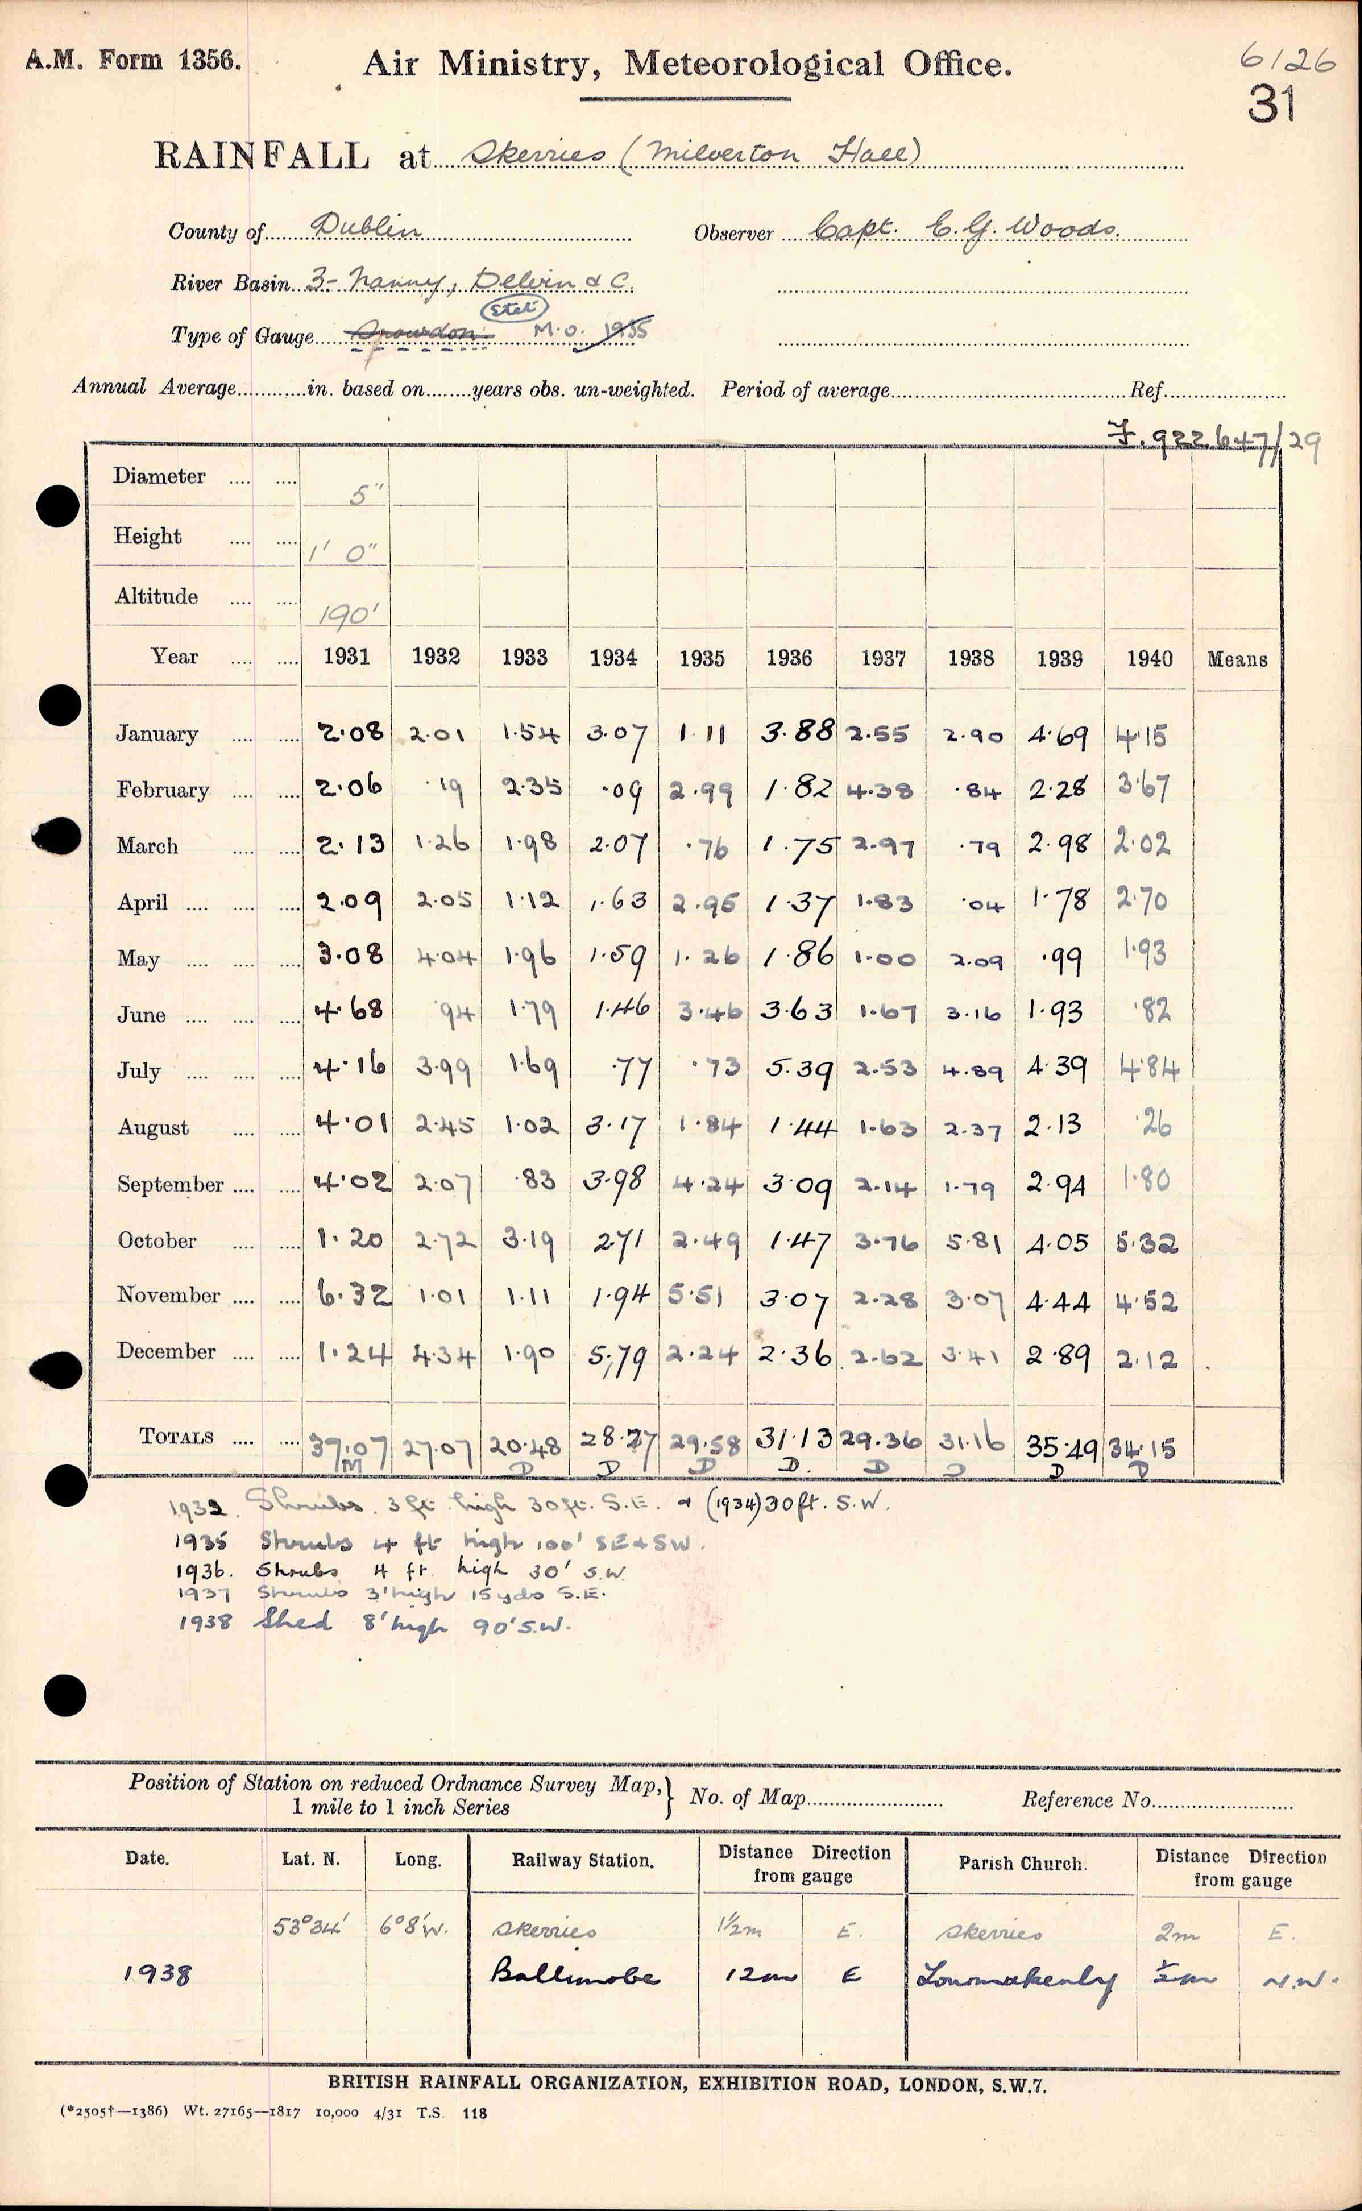 A.M. Form 1356.
Air Ministry, Meteorological Office.
6126
31
RAINFALL at Skerries (Milverton Hall)
County of Dublin Observer Capt. C. G. Woods.
River Basin 3- Nanny, Delvin & C.
Type of Gauge Snowdon M.O. 1935
Annual Average in. based on years obs. un-weighted. Period of average Ref.
Diameter 5"
Height 1' 0"
Altitude 190'
Year 1931 1932 1933 1934 1935 1936 1937 1938 1939 1940 Means
January 2.08 2.01 1.54 3.07 1.11 3.88 2.55 2.90 4.69 4.15
February 2.06 .19 2.35 .09 2.99 1.82 4.38 .84 2.28 3.67
March 2.13 1.26 1.98 2.07 .76 1.75 2.97 .79 2.98 2.02
April 2.09 2.05 1.12 1.63 2.95 1.37 1.83 .04 1.78 2.70
May 3.08 4.04 1.96 1.59 1.26 1.86 1.00 2.09 .99 1.93
June 4.68 .94 1.79 1.46 3.46 3.63 1.67 3.16 1.93 .82
July 4.16 3.99 1.69 .77 .73 5.39 2.53 4.89 4.39 4.84
August 4.01 2.45 1.02 3.17 1.84 1.44 1.63 2.37 2.13 .26
September 4.02 2.07 .83 3.98 4.24 3.09 2.14 1.79 2.94 1.80
October 1.20 2.72 3.19 2.71 2.49 1.47 3.76 5.81 4.05 5.32
November 6.32 1.01 1.11 1.94 5.51 3.07 2.28 3.07 4.44 4.52
December 1.24 4.34 1.90 5.79 2.24 2.36 2.62 3.41 2.89 2.12
TOTALS 37.07 27.07 20.48 28.27 29.58 31.13 29.36 31.16 35.49 34.15
M D D D D. D D D D
1932. Shrubs. 3 ft high 30 ft. S.E. & (1934) 30 ft. S.W.
1935 Shrubs 4 ft high 100' SE & SW.
1936. Shrubs 4 ft high 30' S.W.
1937 Shrubs 3' high 15 yds S.E.
1938 Shed 8' high 90' S.W.
Position of Station on reduced Ordnance Survey Map, } No. of Map Reference No.
1 mile to 1 inch Series
Date. Lat. N. Long. Railway Station. Distance Direction from gauge Parish Church. Distance Direction from gauge
53°34' 6°8'W. Skerries 1½m E. Skerries 2m E.
1938 12m E ½m N.W.
BRITISH RAINFALL ORGANIZATION, EXHIBITION ROAD, LONDON, S.W.7.
(*2505†—1386) Wt. 27165—1817 10,000 4/31 T.S. 118